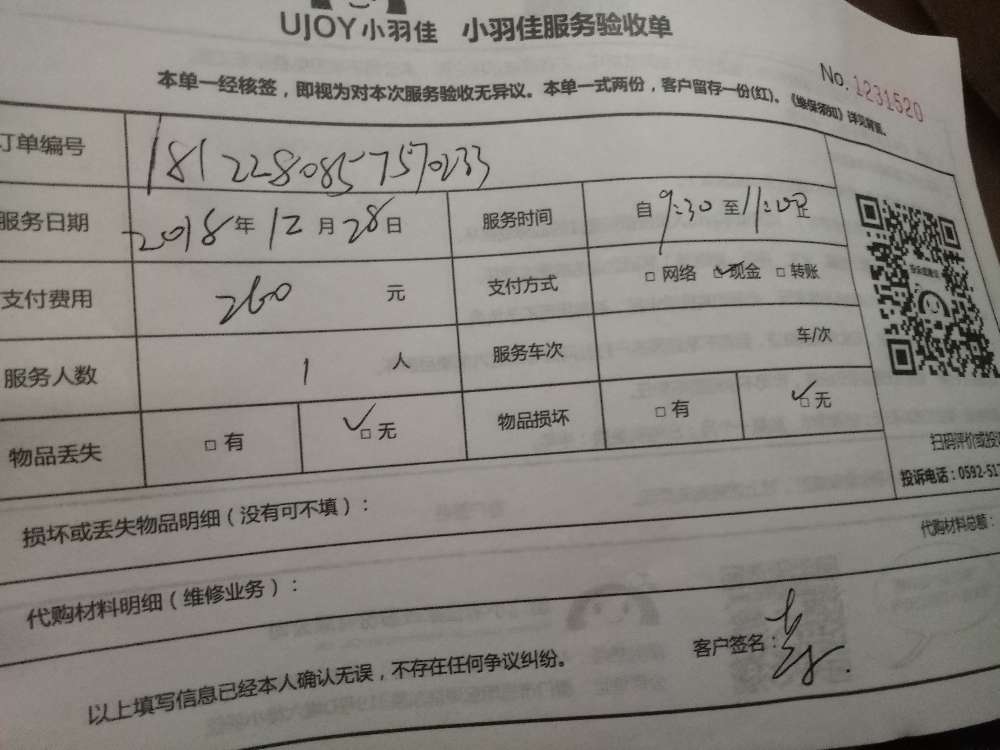 UJOY小羽佳 小羽佳服务验收单
No. 1231520
本单一经核签，即视为对本次服务验收无异议。本单一式两份，客户留存一份(红)。《维保须知》详见背面。
订单编号 1812280857570233
服务日期 2018年12月28日 服务时间 自9:30至11:20止
支付费用 260 元 支付方式 □网络 ☑现金 □转账
服务人数 1 人 服务车次 车/次
物品丢失 □有 ☑无 物品损坏 □有 ☑无
扫码评价或投
投诉电话：0592-517
损坏或丢失物品明细（没有可不填）：
代购材料总额：
代购材料明细（维修业务）：
以上填写信息已经本人确认无误，不存在任何争议纠纷。
客户签名：